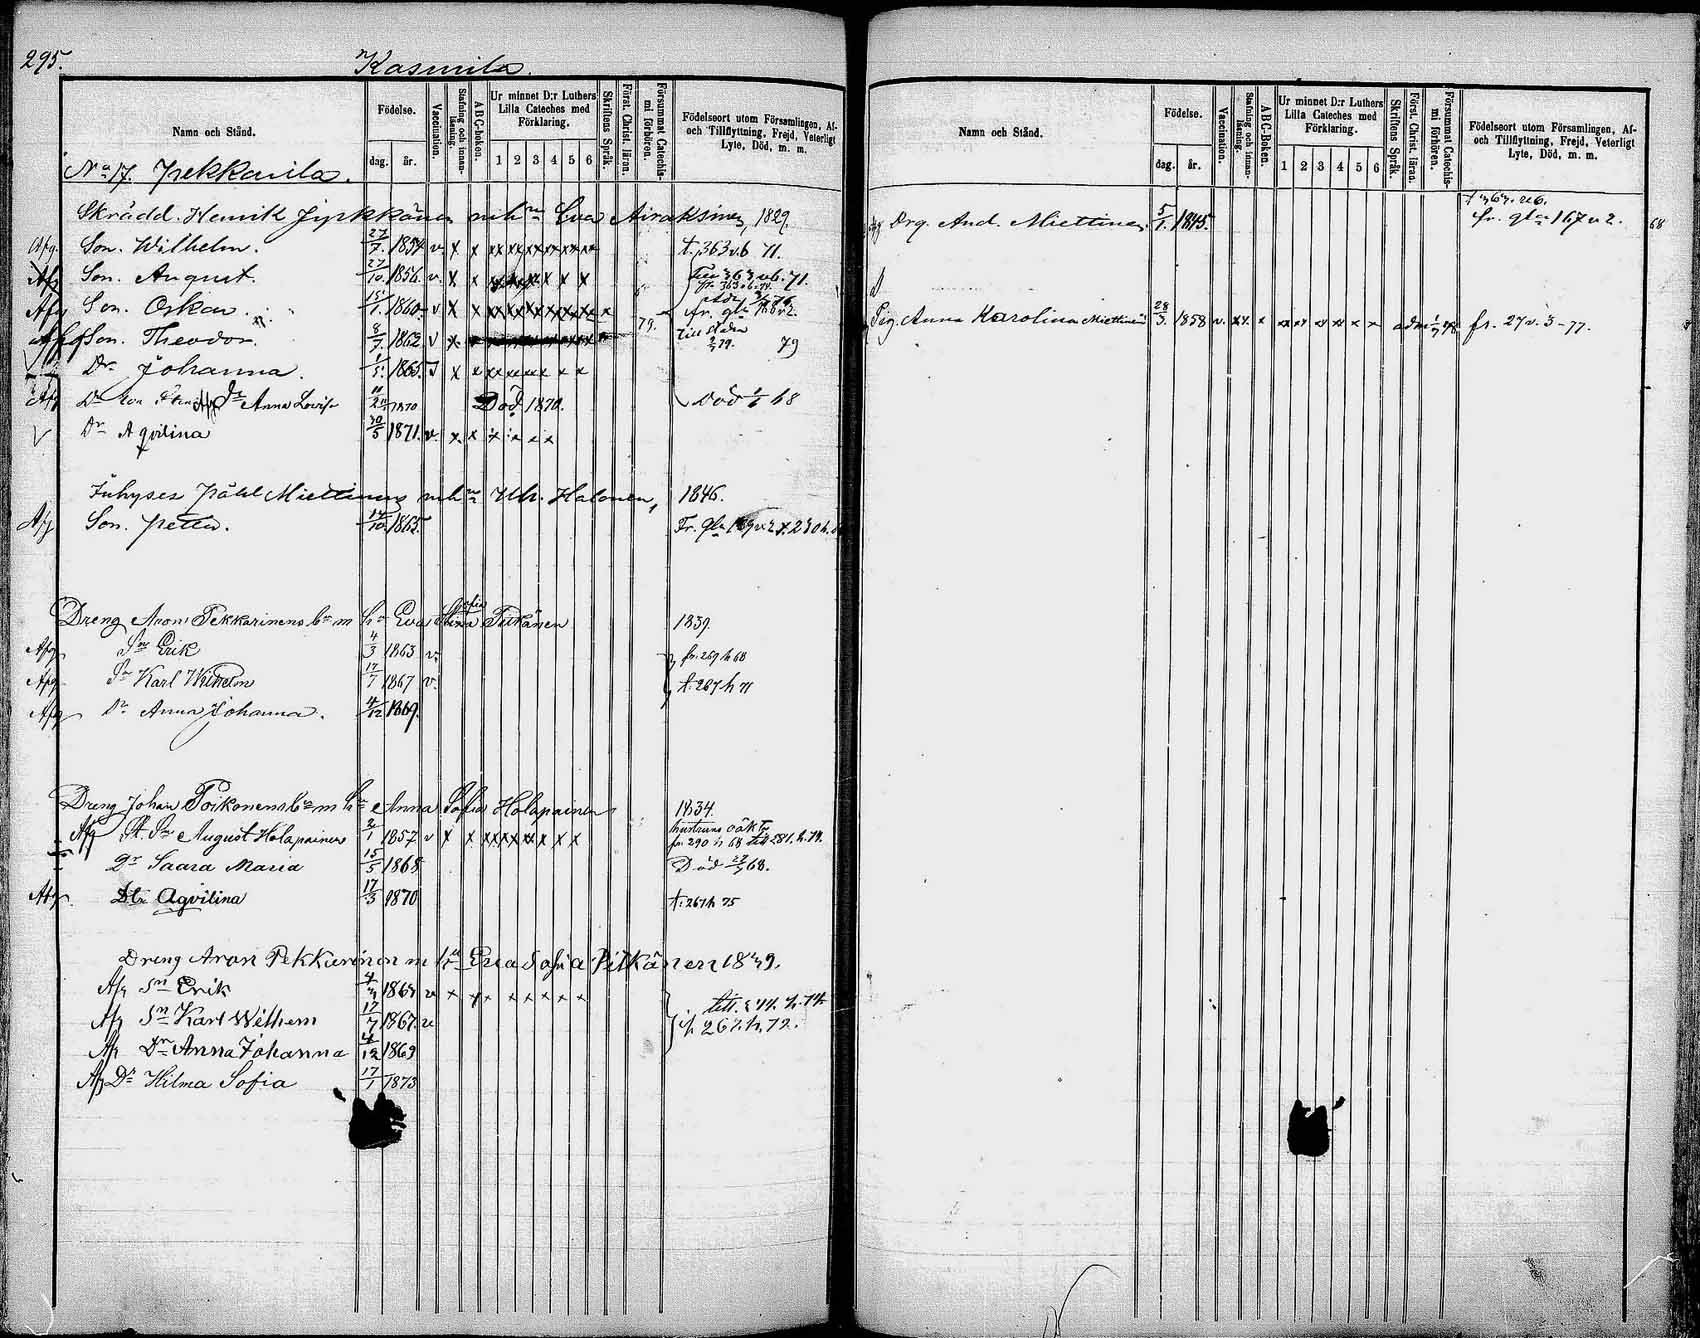 295.
Kasurila.
Namn och Stånd.
Födelse.
dag. år.
Vaccination.
Stafning och innanläsning.
ABC-boken.
Ur minnet D:r Luthers Lilla Cateches med Förklaring.
1 2 3 4 5 6
Skriftens Språk.
Först. Christ. läran.
Försummat Catechismi förhören.
Födelseort utom Församlingen, Af- och Tillflyttning, Frejd, Veterligt Lyte, Död, m. m.
No 17. Pekkarila.
Skrädd. Henrik Jyrkkänen m h:u Eva Airaksinen, 1829.
Afg. Son. Wilhelm. 27/7. 1854 v. x x xx xx xx xx xx xx t. 363 v. b 71.
Afg Son. August. 27/10. 1856. v. x x
Afg Son. Oskar. 15/1. 1860 v x x fr. gla
Afg Son. Theodor. 8/7. 1862 v x till staden 79
Dr Johanna. 1/5. 1865. x x
Afg Dr Anna Lovisa 1870 Död 1870. Död 68
v Dr Aqvilina 30/5 1871. v. x x x x x x
Inhyses Påhl Miettinens m h:u Ulr. Halonen, 1846.
Afg Son. Petter. 14/10. 1865. Fr. gla
Dreng Aron Pekkarinens m h:u Eva Stina Sofia Pitkänen 1839.
Afg Sn Erik 4/3 1863 v. fr. 269 h 68
Afg Sn Karl Wilhelm 17/7 1867 v. t. 267 h 71
Afg Dr Anna Johanna. 4/12 1869.
Dreng Johan Toikonens m h:u Anna Sofia Holapainen 1834.
Afg St. Sn August Holapainen 2/1 1857 v x x hustruns oäkta fr. 290 h 68 till 281. h. 74.
Dr Saara Maria 15/5 1868 Död 68.
Afg. Dtr Aqvilina 17/3 1870 t. 267 h 75
Dreng Aron Pekkarinen m h:u Eva Sofia Pitkänen 1839.
Afg Sn Erik 4/3 1863 v x x x x x x x x
Afg Sn Karl Wilhem 17/7 1867. v fr. 267. h. 72.
Afg Dr Anna Johanna 4/12 1869
Afg Dr Hilma Sofia 17/1 1873
Namn och Stånd.
Födelse.
dag. år.
Vaccination.
Stafning och innanläsning.
ABC-Boken.
Ur minnet D:r Luthers Lilla Cateches med Förklaring.
1 2 3 4 5 6
Skriftens Språk.
Först. Christ. läran.
Försummat Catechismi förhören.
Födelseort utom Församlingen, Af- och Tillflyttning, Frejd, Veterligt Lyte, Död, m. m.
Drg. And. Miettinen. 5/1. 1845. fr. gla 167 v 2. 68
Pig. Anna Karolina Miettinen 28/3. 1858 v. fr. 27 v. 3-77.